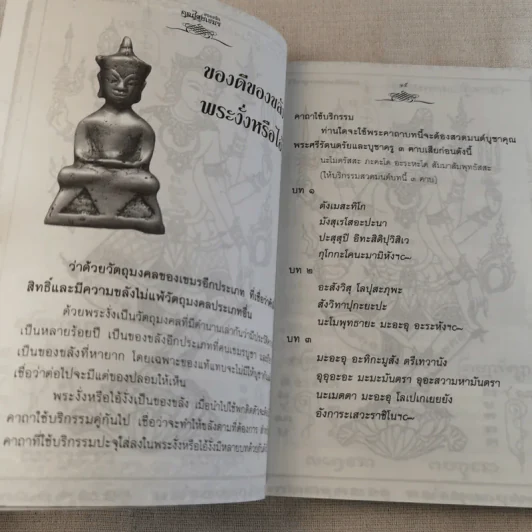 ของดีของขลัง
พระงั่งหรือไอ้
ว่าด้วยวัตถุมงคลของเขมรอีกประเภท ที่เชื่อว่า
สิทธิ์และมีความขลังไม่แพ้วัตถุมงคลประเภทอื่น
ด้วยพระงั่งเป็นวัตถุมงคลที่มีตำนานเล่ากันว่ามีประวัติ
เป็นหลายร้อยปี เป็นของขลังอีกประเภทที่คนเขมรบูชา
เป็นของขลังที่หายาก โดยเฉพาะของแท้แทบจะไม่มีให้บูชา
เชื่อว่าต่อไปจะมีแต่ของปลอมให้เห็น
พระงั่งหรือไอ้งั่งเป็นของขลัง เมื่อนำไปใช้พกติดตัว
คาถาใช้บริกรรมคู่กันไป เชื่อว่าจะทำให้ขลังตามที่ต้องการ
คาถาที่ใช้บริกรรมปะจุใส่ลงในพระงั่งหรือไอ้งั่งมีหลายบทด้วยกัน
คาถาใช้บริกรรม
ท่านใดจะใช้พระคาถาบทนี้จะต้องสวดมนต์บูชาคุณ
พระศรีรัตนตรัยและบูชาครู ๓ คาบเสียก่อนดังนี้
นะโมตรัสสะ ภะคะโต อะระหะโต สัมมาสัมพุทธัสสะ
(ให้บริกรรมสวดมนต์บทนี้ ๓ คาบ)
บท ๑
ตังเมสะทิโก
มังสุเรโสอะปะนา
ปะสุสุปิ อีทะสิติปุวิสิเว
กุโกกะโคนะมามิหังฯ๛
บท ๒
อะสังวิสุ โลปุสะภุพะ
สังวิทาปุกะยะปะ
นะโมพุทธายะ มะอะอุ อะระหังฯ๛
บท ๓
มะอะอุ อะทิกะมูสัง ตรีเทวานัง
อุอุอะอะ มะมะมันตรา อุอะสวามหามันตรา
นะเมตตา มะอะอุ โลเปเกเยยยัง
อังการะเสวะราชิโนฯ๛